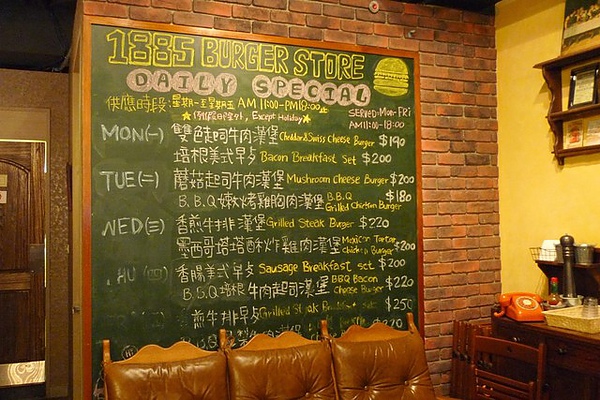 1885 BURGER STORE
DAILY SPECIAL
供應時段:星期一至星期五 AM 11:00-PM18:00
Except Holiday
SERVED: Mon-Fri
AM11:00-18:00
MON(一) 雙色起司牛肉漢堡 Cheddar&Swiss Cheese Burger $190
培根美式早 Bacon Breakfast Set $200
TUE(二) 蘑菇起司牛肉漢堡 Mushroom Cheese Burger $200
B.B.Q嫩烤雞胸肉漢堡 B.B.Q Grilled Chicken Burger $180
WED(三) 香煎牛排漢堡 Grilled Steak Burger $220
墨西哥塔塔酥炸雞肉漢堡 Mexican Tartar Chicken Burger $200
THU(四) 香腸美式早 Sausage Breakfast set $200
B.B.Q培根牛肉起司漢堡 BBQ Bacon Cheese Burger $220
煎牛排早 Grilled Steak Breakfast $250